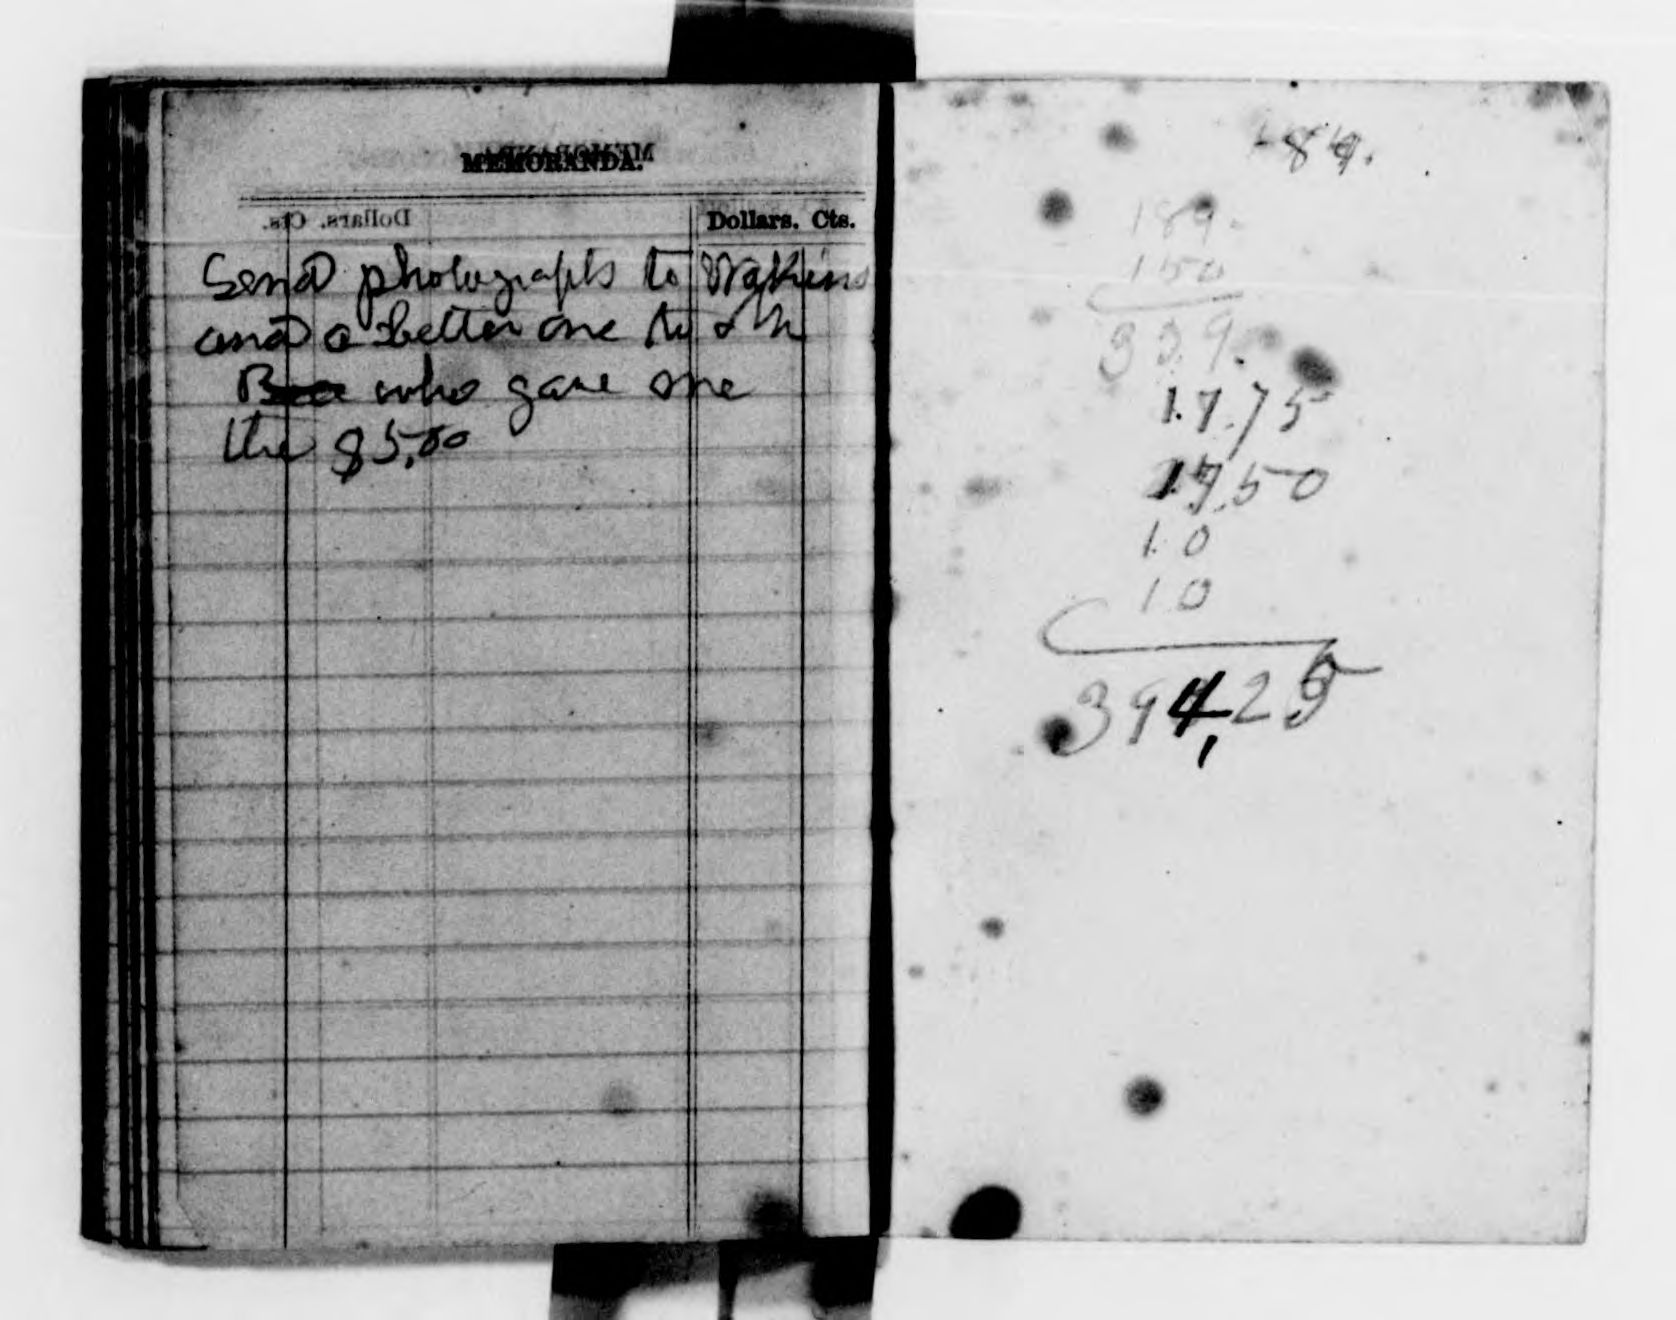 MEMORANDA.
Dollars. Cts.
Send photographs to Watkins
and a better one to
who gave me
the $5,00
189
150
339.
17.75
17,50
10
10
394,25